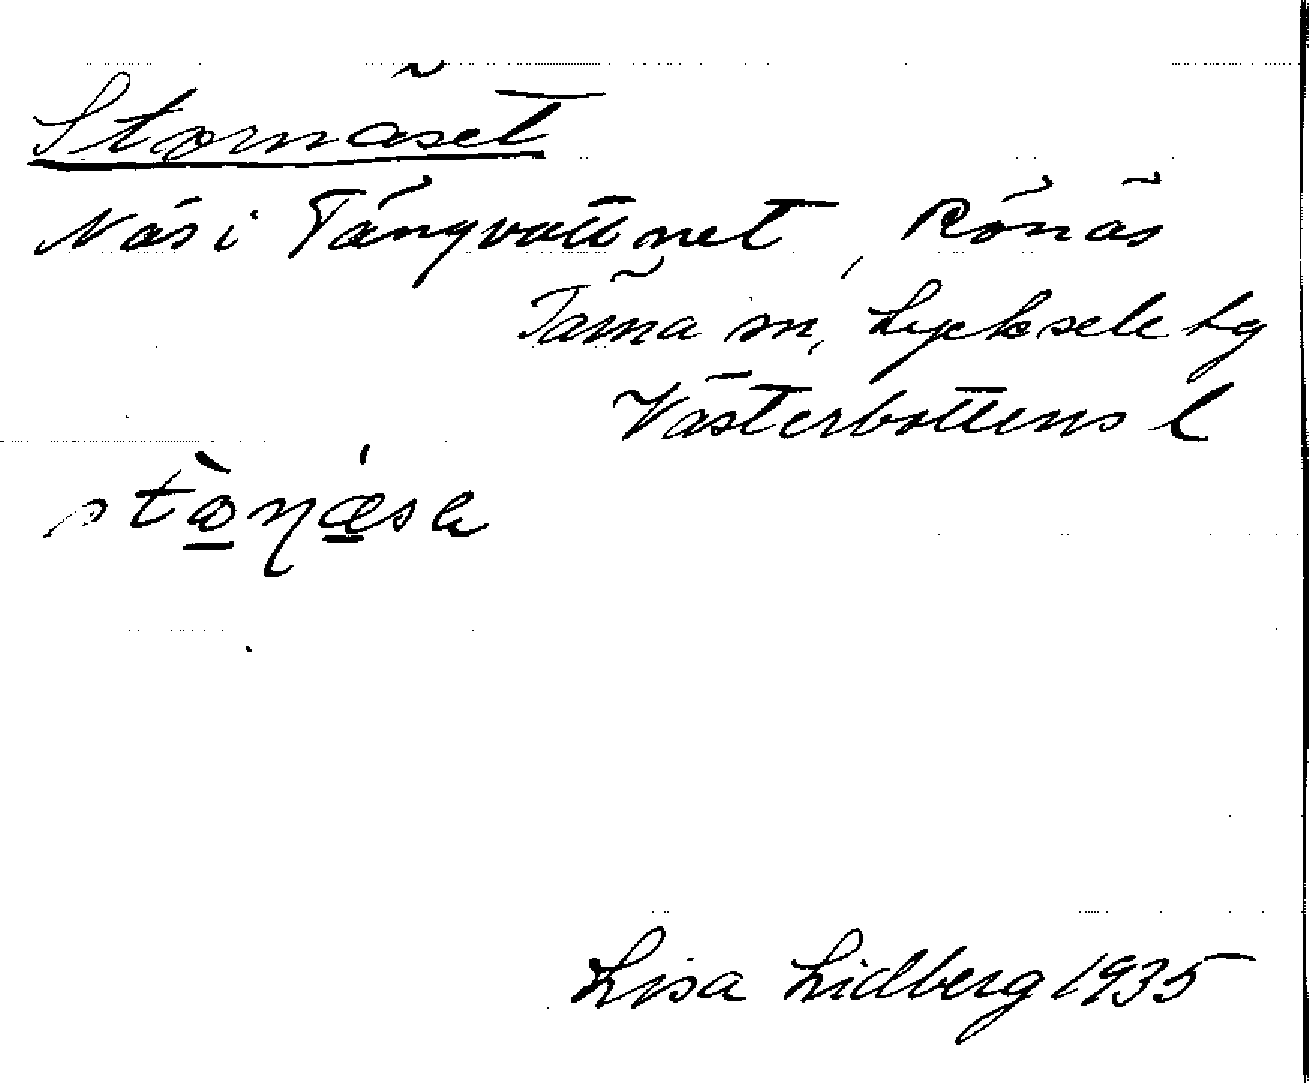 Stornäset
Näs i Tängvattnet, Rönäs
Tärna sn, Lycksele lg
Västerbottens l
Lisa Lidberg 1935